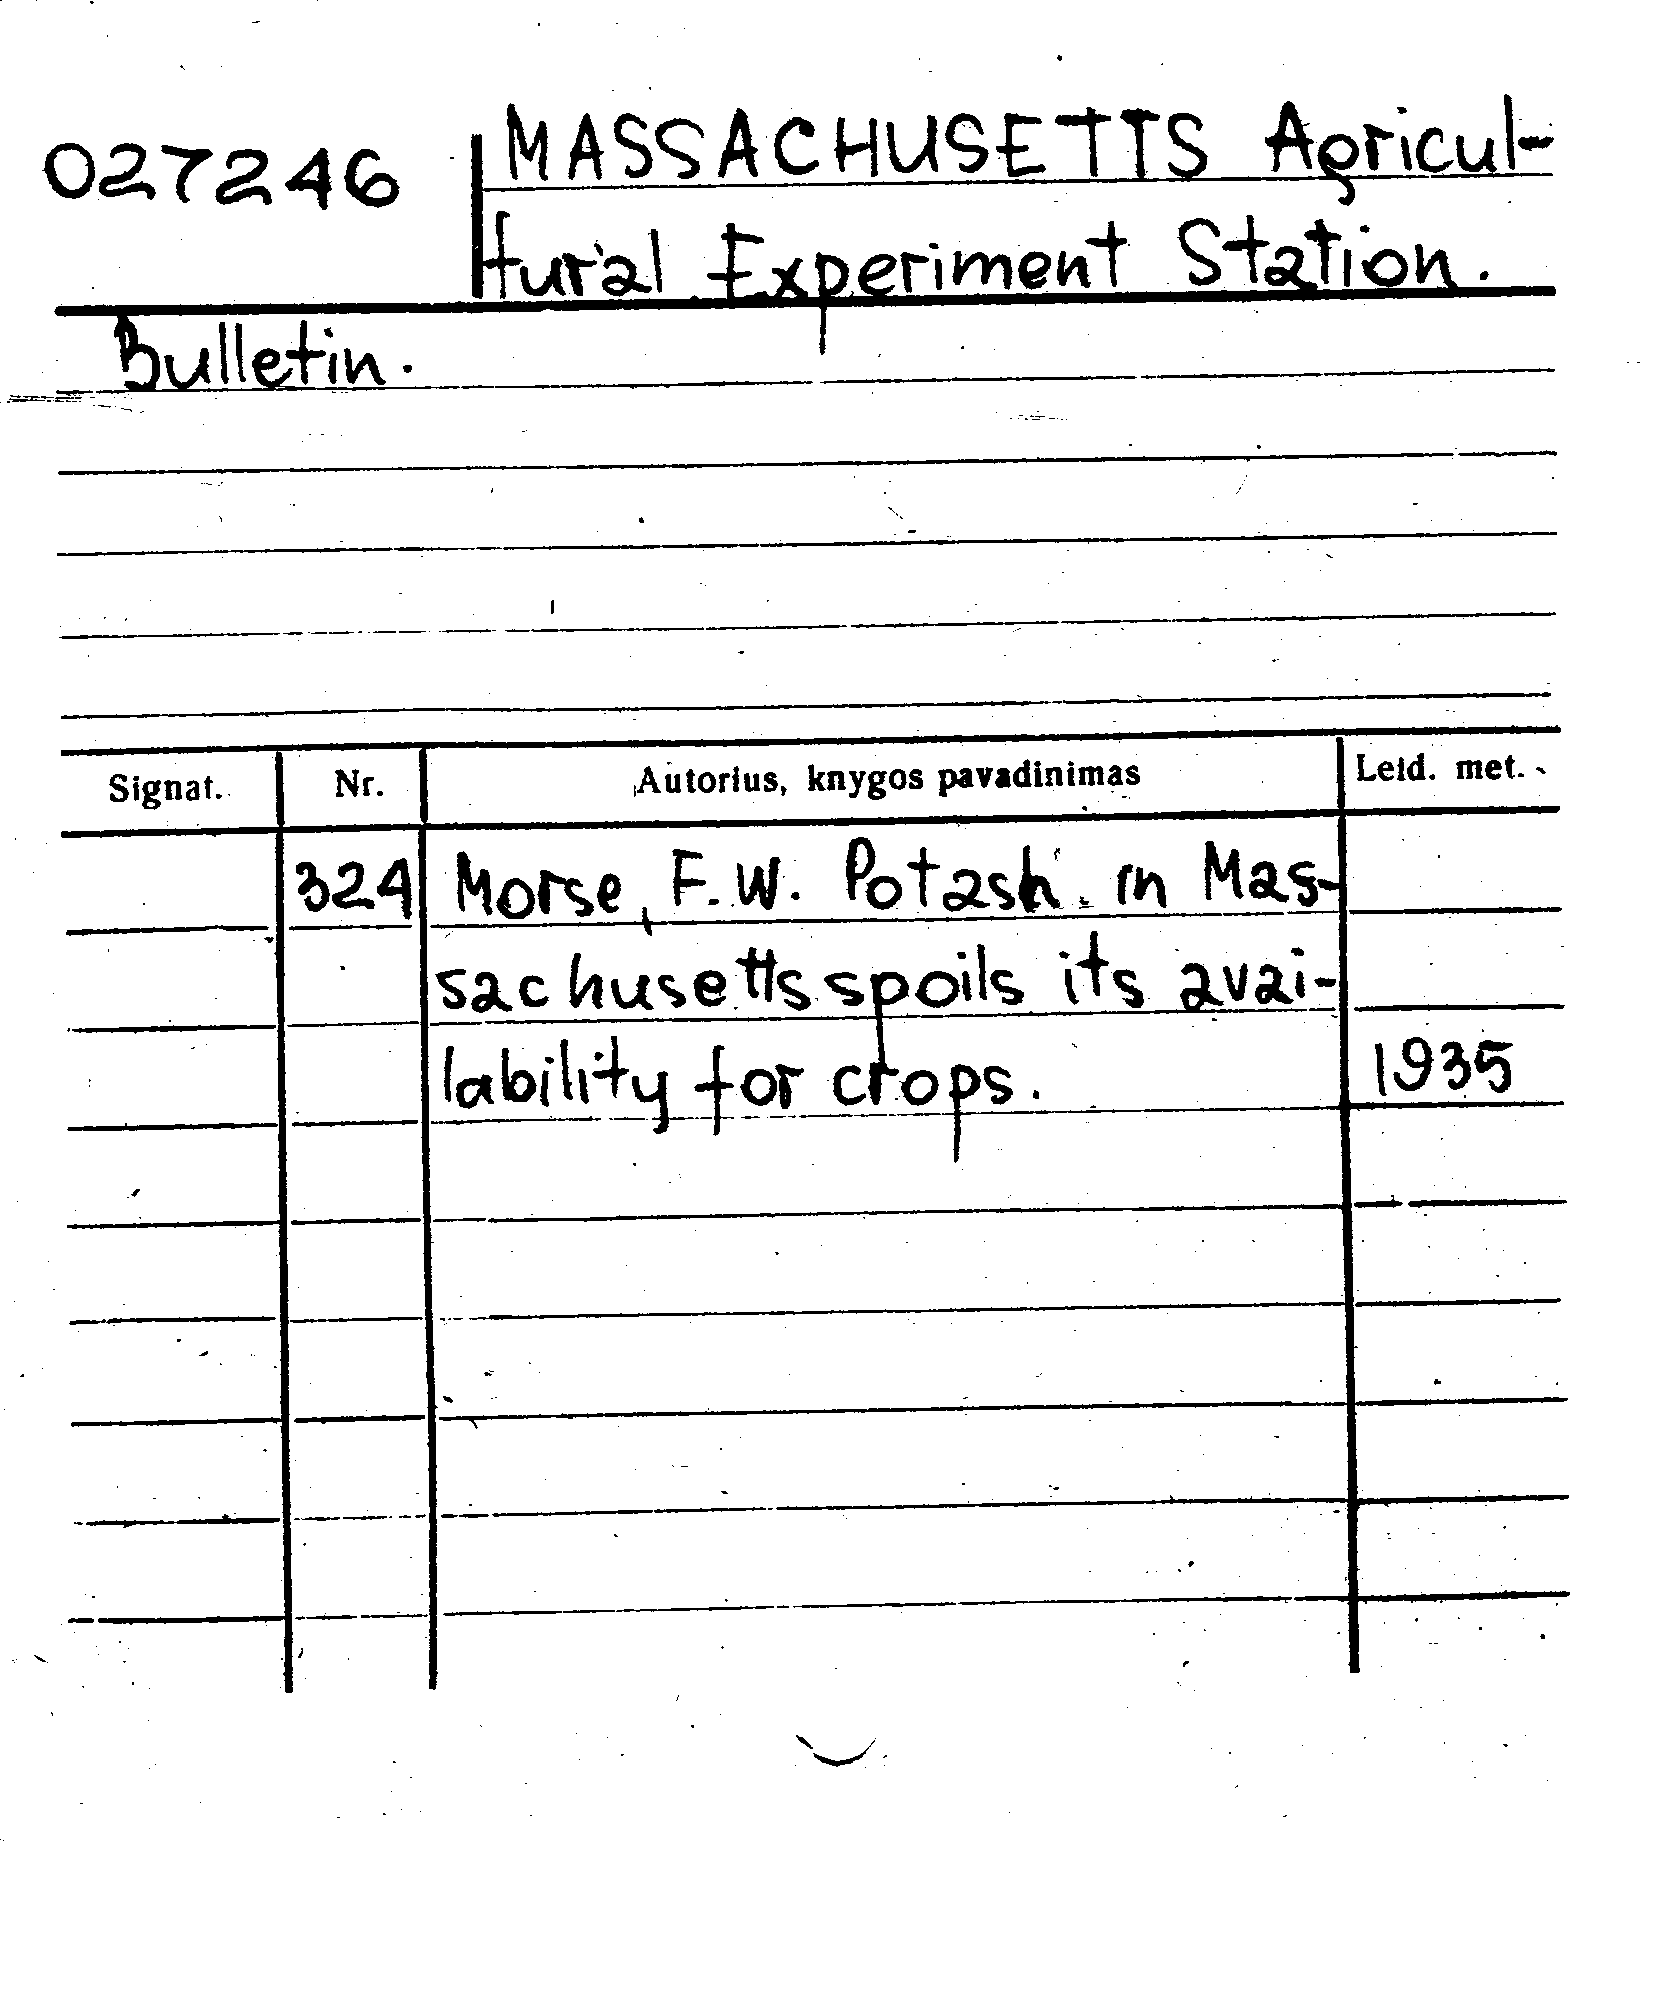 027246 MASSACHUSETTS Agricul-
tural Experiment Station.
Bulletin.
Signat. Nr. Autorius, knygos pavadinimas Leid. met.
324 Morse, F.W. Potash in Mas-
sachusetts spoils its avai-
lability for crops. 1935